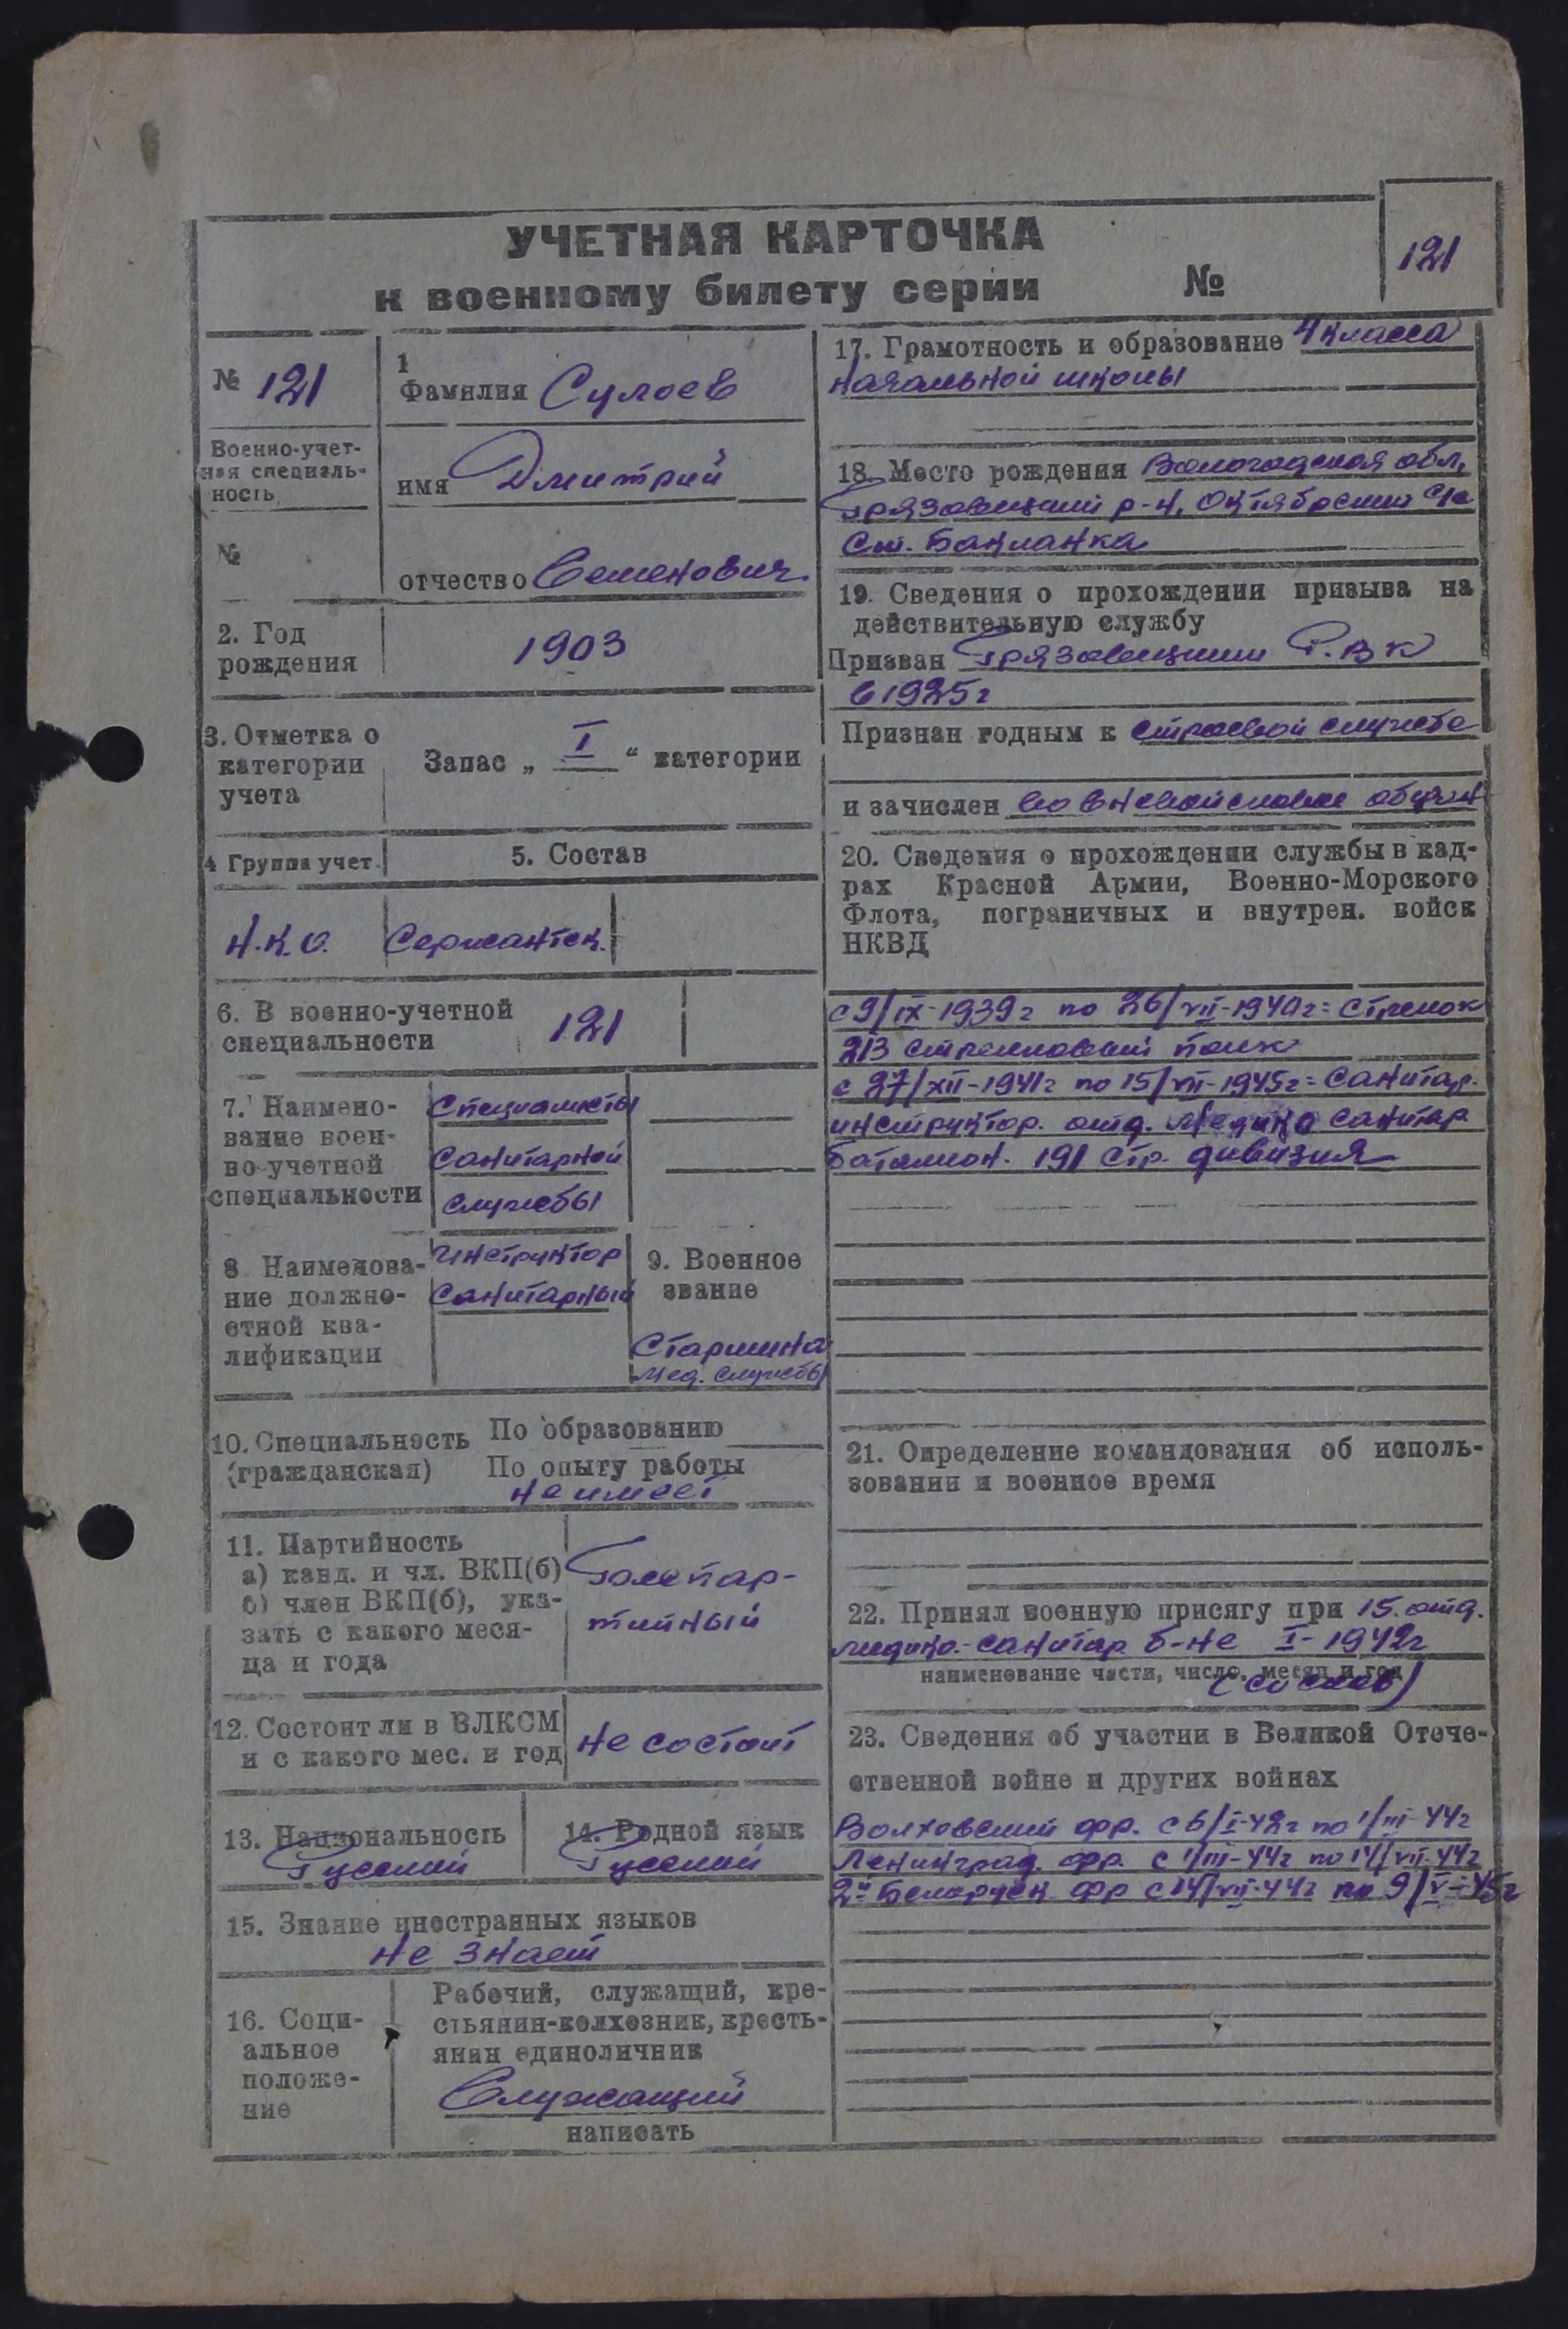 УЧЕТНАЯ КАРТОЧКА
к военному билету серии №
121
№ 121
1
Фамилия Сулоев
Военно-учет-
ная специаль-
ность
имя Дмитрий
№
отчество Семенович
2. Год
рождения
1903
3. Отметка о
категории
учета
Запас „ I “ категории
4 Группа учет.
5. Состав
Н.К.О.
Сержантск.
6. В военно-учетной
специальности
121
7. Наимено-
вание воен-
но-учетной
специальности
Специалисты
санитарной
службы
8 Наименова-
ние должно-
стной ква-
лификации
Инструктор
санитарный
9. Военное
звание
Старшина
мед. службы
10. Специальность
(гражданская)
По образованию
По опыту работы
не имеет
11. Партийность
а) канд. и чл. ВКП(б)
б) член ВКП(б), ука-
зать с какого меся-
ца и года
Беспар-
тийный
12. Состоит ли в ВЛКСМ
и с какого мес. и год
не состоит
13. Национальность
Русский
14. Родной язык
Русский
15. Знание иностранных языков
не знает
16. Соци-
альное
положе-
ние
Рабочий, служащий, кре-
стьянин-колхозник, кресть-
янин единоличник
Служащий
написать
17. Грамотность и образование 4 класса
начальной школы
18. Место рождения Вологодская обл,
Грязовецкий р-н, Октябрский с/с
ст. Бакланка
19. Сведения о прохождении призыва на
действительную службу
Призван Грязовецким Р.В.К
в 1925г
Признан годным к строевой службе
и зачислен во вневойсковое обучен
20. Сведения о прохождении службы в кад-
рах Красной Армии, Военно-Морского
Флота, пограничных и внутрен. войск
НКВД
с 9/IX-1939г по 26/VII-1940г = стрелок
213 стрелковый полк
с 27/XII-1941г по 15/VII-1945г = санитар.
инструктор. отд. медико санитар
батальон. 191 стр. дивизия
21. Определение командования об исполь-
зовании в военное время
22. Принял военную присягу при 15. отд.
медико.-санитар б-не I-1942г
наименование части, число, месяц и год
(со слов)
23. Сведения об участии в Великой Отече-
ственной войне и других войнах
Волховский фр. с 6/I-42г по 1/III-44г
Ленинград. фр. с 1/III-44г по 14/VII-44г
2й Белорусск. фр с 14/VII-44г по 9/V-45г